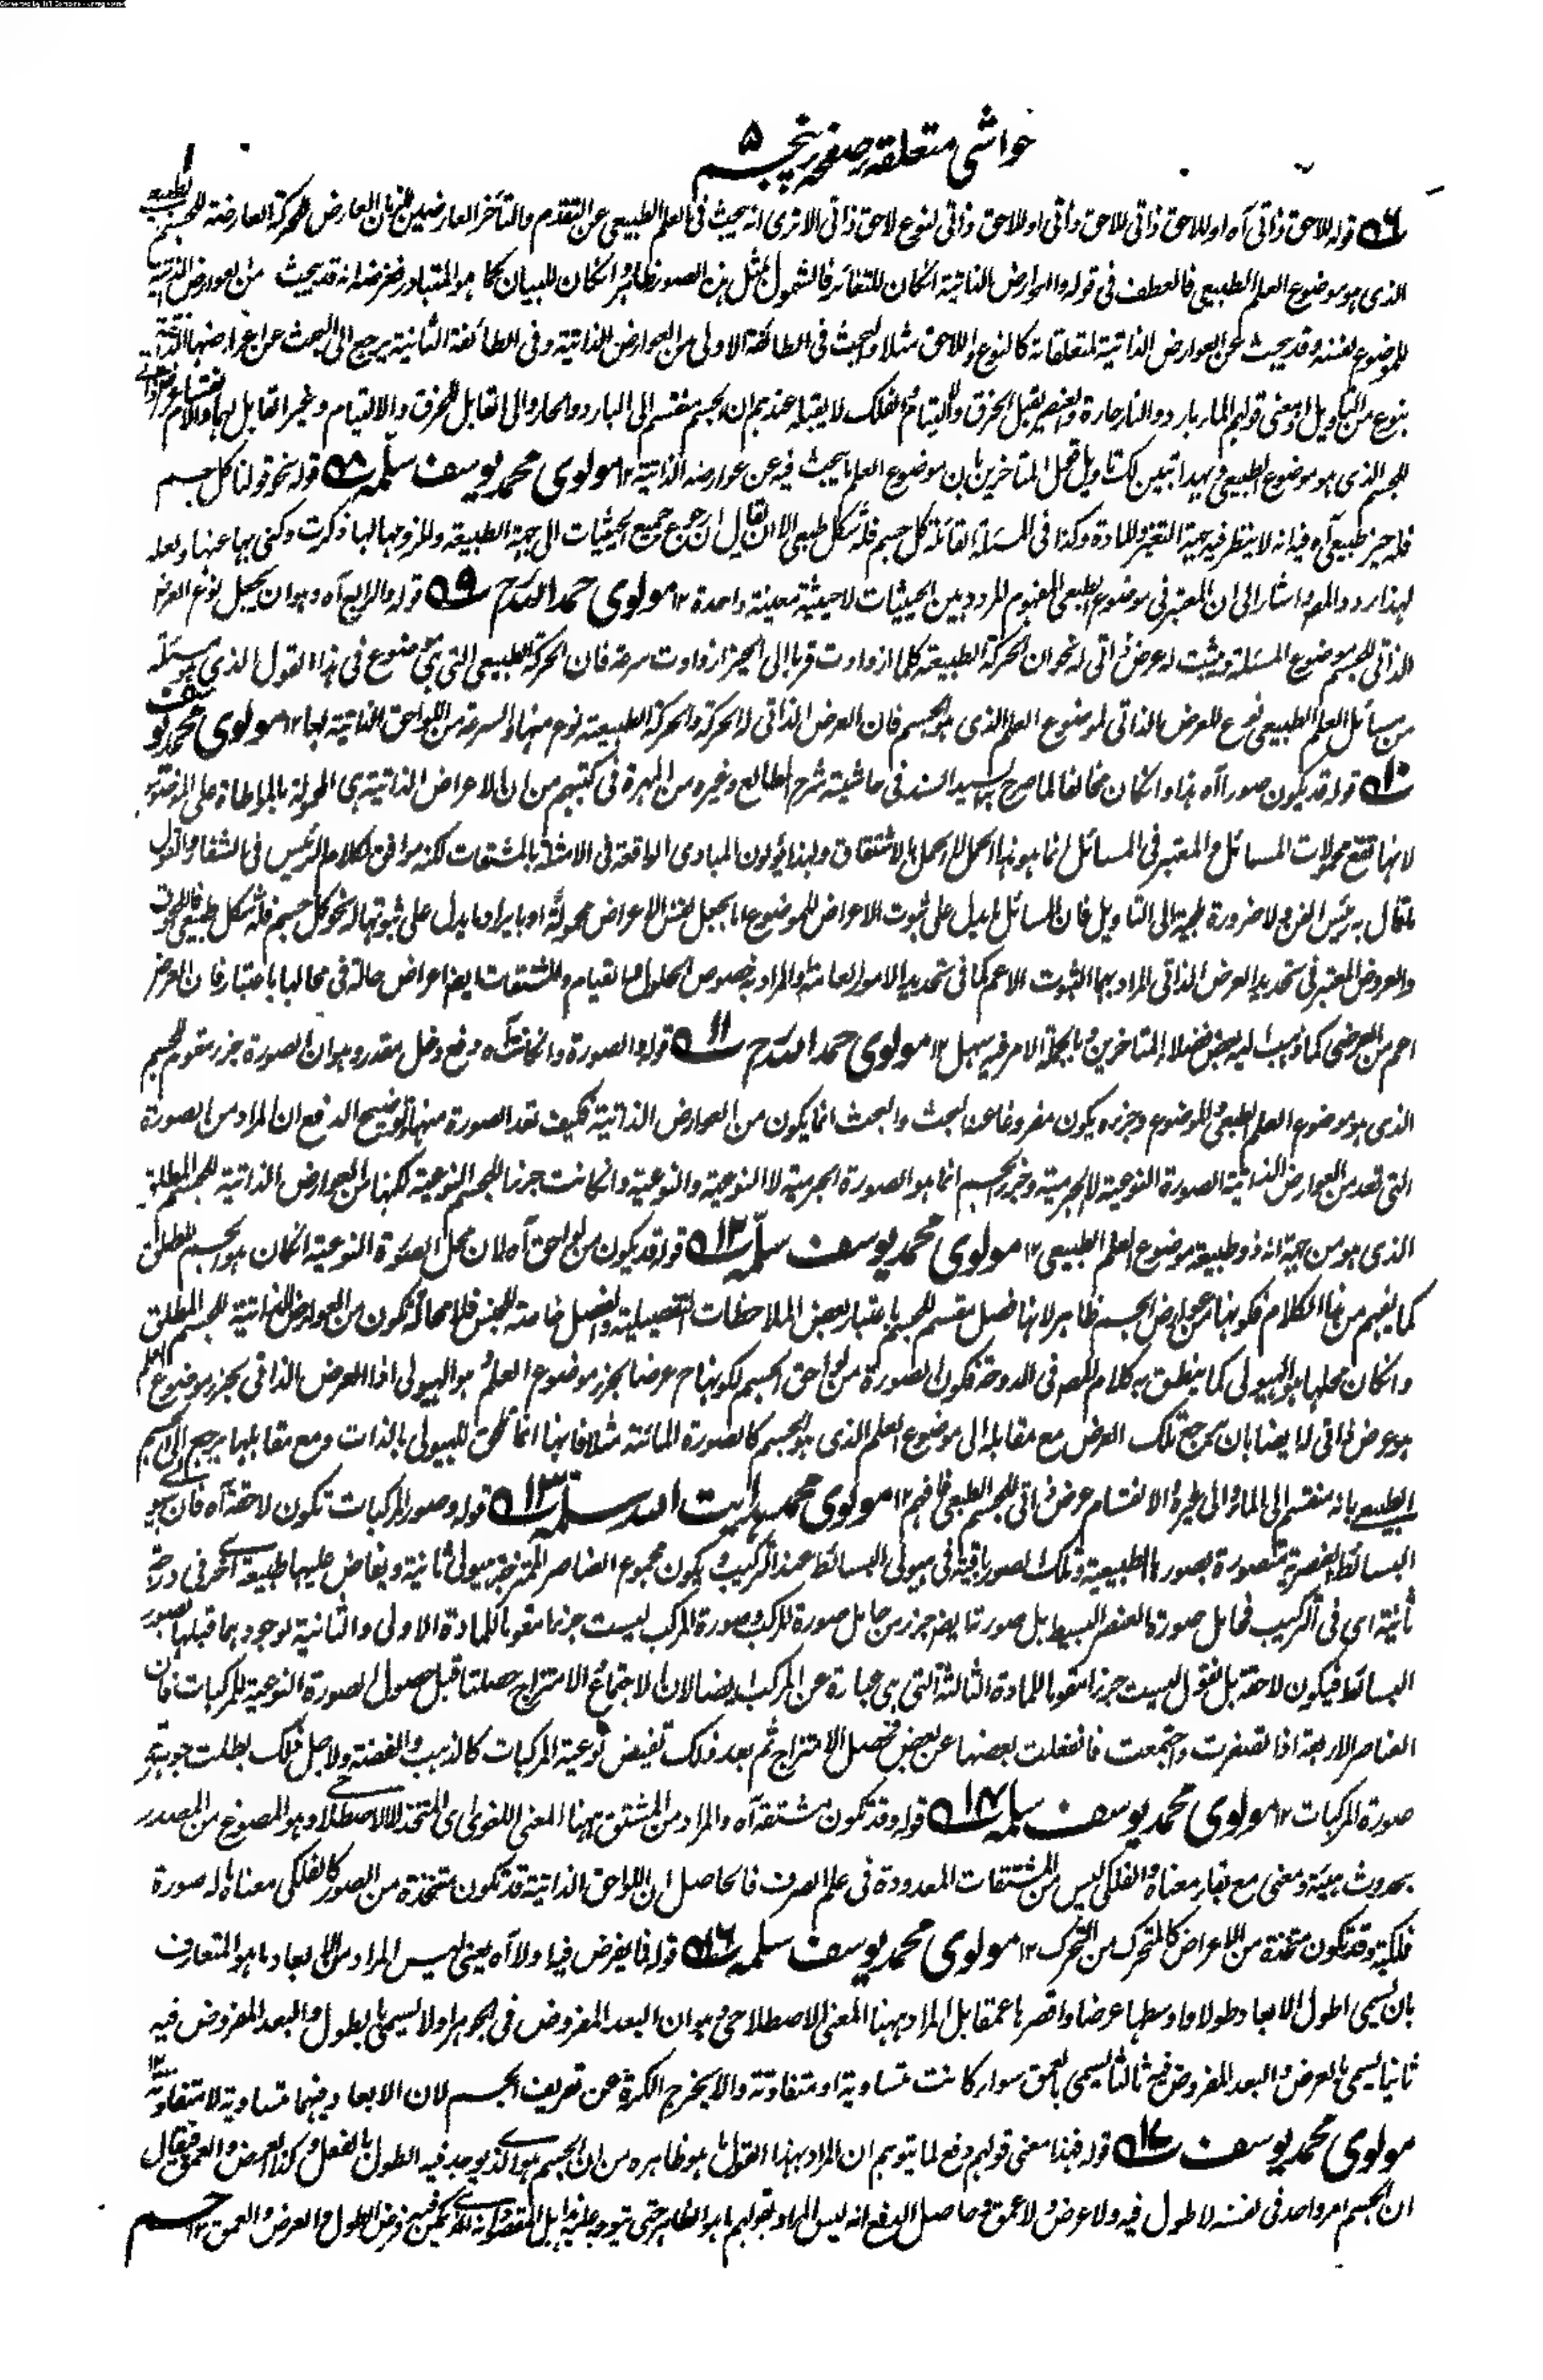 حواشی متعلقہ صفحہ پنجم ۵
قوله للاحق ذاتی آه او للاحق ذاتی للاحق ذاتی او للاحق ذاتی لنوع لاحق ذاتی الا تری انه یبحث فی العلم الطبیعی عن التقدم والتأخر العارضین للزمان العارض للحرکة العارضة للجسم الطبیعی
الذی هو موضوع العلم الطبیعی فالعطف فی قوله والعوارض الذاتیة انکان للتغائر فالشمول لمثل هذه الصور ظاهر وانکان للبیان کما هو المتبادر فغرضه انه قد یبحث عن العوارض الذاتیة
للموضوع نفسه وقد یبحث عن العوارض الذاتیة لمتعلقاته کالنوع واللاحق مثلا والبحث فی الطائفة الاولی من العوارض الذاتیة وفی الطائفة الثانیة یرجع الی البحث عن اعراضها الذاتیة
بنوع من التاویل اذ معنی قولهم الماء بارد والنار حارة والعنصر یقبل الخرق والالتیام والفلک لا یقبله عندهم ان الجسم منقسم الی البارد والحار والی القابل للخرق والالتیام وغیر القابل لهما
للجسم الذی هو موضوع الطبیعی وبهذا تبین لک تاویل قول المتاخرین بان موضوع العلم ما یبحث فیه عن عوارضه الذاتیة ۱۲ مولوی محمد یوسف سلمه ۸ قوله نحو قولنا کل جسم
فله حیز طبیعی آه فیه انه لا ینتظر فیه جهة التغیر والمادة وکذا فی المسئلة القائلة کل جسم فله شکل طبیعی الا ان یقال ان رجوع جمیع الحیثیات الی جهة الطبیعة ولزومها لها ذکرت وکنی بها عنها ولعله
لهذا ردد المصنف واشار الی ان المعتبر فی موضوع الطبیعی المفهوم المردد بین الحیثیات لا حیثیة معینة واحدة ۱۲ مولوی حمد الله رح ۹ قوله والرابع آه وهو ان یجعل نوع العرض
الذاتی للجسم موضوع المسئلة ویثبت له عرض ذاتی له نحو ان الحرکة الطبیعیة کلما ازدادت قربا الی الحیز ازدادت سرعة فان الحرکة الطبیعیة التی هی موضوع فی هذا القول الذی هو مسئلة
من مسائل العلم الطبیعی نوع للعرض الذاتی لموضوع العلم الذی هو الجسم فان العرض الذاتی له الحرکة والحرکة الطبیعیة نوع منها والسرعة من اللواحق الذاتیة لها ۱۲ مولوی محمد یوسف
۱۰ قوله قد یکون صورا آه هذا وانکان مخالفا لما صرح به السید السند فی حاشیته شرح المطالع وغیره من المهرة فی کتبهم من ان الاعراض الذاتیة هی المحمولة بالمواطاة علی الموضوع
لانها تقع محمولات المسائل والمعتبر فی المسائل انما هو هذا الحمل لا الحمل بالاشتقاق ولهذا یؤولون المبادی الواقعة فی الامثلة بالمشتقات لکنه موافق لکلام الرئیس فی الشفا والقول
ما قال به رئیس الفن ولا ضرورة ملجئة الی التاویل فان المسائل ما یدل علی ثبوت الاعراض للموضوع اما بجعل نفس الاعراض محمولة او بایراد ما یدل علی ثبوتها له نحو کل جسم فله شکل طبیعی
والعروض المعتبر فی تحدید العرض الذاتی المراد بهما الثبوت الاعم کما فی تحدید الامور العامة والمراد به خصوص الحلول والقیام والمشتقات ایضا اعراض حالة فی محالها باعتبار فان العرض
اعم من العرضی کما ذهب الیه بعض فضلاء المتاخرین وبالجملة الامر فیه سهل ۱۲ مولوی حمد الله رح ۱۱ قوله والصورة وانکانت آه دفع دخل مقدر وهو ان الصورة جزء مقوم للجسم
الذی هو موضوع العلم الطبیعی والموضوع وجزءه یکون مفروغا عن البحث والبحث انما یکون من العوارض الذاتیة فکیف تعد الصورة منها وتوضیح الدفع ان المراد من الصورة
التی تعد من العوارض الذاتیة الصورة النوعیة لا الجرمیة وجزء الجسم انما هو الصورة الجرمیة لا النوعیة والنوعیة وانکانت جزءا للجسم النوعیة لکنها من العوارض الذاتیة للجسم المطلق
الذی هو من جهة انه ذو طبیعة موضوع العلم الطبیعی ۱۲ مولوی محمد یوسف سلمه ۱۲ قوله قد یکون من لواحق آه لان محل الصورة النوعیة انکان هو الجسم المطلق
کما یفهم من هذا الکلام فکونها من عوارض الجسم ظاهر لانها فصل مقسم للجسم باعتبار بعض الملاحظات التفصیلیة والفصل خاصة للجنس فلا محالة تکون من العوارض الذاتیة للجسم المطلق
وانکان محلها هو الهیولی کما ینطق به کلام المصنف فی الدوحة فکون الصورة من لواحق الجسم لکونها ح عرضا لجزء موضوع العلم وهو الهیولی اذ العرض الذاتی لجزء موضوع العلم
هو عرض ذاتی له ایضا بان یرجع تلک العرض مع مقابله الی موضوع العلم الذی هو الجسم کالصورة المائیة مثلا فانها انما تلحق للهیولی بالذات ومع مقابلها یرجع الی الجسم
الطبیعی بانه منقسم الی الماء والی غیره والانقسام عرض ذاتی للجسم الطبیعی فافهم ۱۲ مولوی محمد هدایت الله سلمه ۱۳ قوله وصور المرکبات تکون لاحقة آه فان هیولی
البسائط العنصریة متصورة بصورها الطبیعیة وتلک الصور باقیة فی هیولی البسائط عند الترکیب ویکون مجموع العناصر الممتزجة هیولی ثانیة ویفاض علیها طبیعة اخری فی درجة
ثانیة ای فی الترکیب فحامل صورة العنصر البسیط بل صورتها ایضا جزء من حامل صورة المرکب وصورة المرکب لیست جزءا مقوما للمادة الاولی والثانیة لوجودهما قبلها بصور
البسائط فیکون لاحقة بل نقول لیست جزءا مقوما للمادة الثالثة التی هی عبارة عن المرکب ایضا لان الاجتماع والامتزاج حصلتا قبل حصول الصورة النوعیة للمرکبات فان
العناصر الاربعة اذا تصغرت واجتمعت فانفعلت بعضها عن بعض فحصل الامتزاج ثم بعد ذلک تفیض نوعیة المرکبات کالذهب والفضة ولاجل ذلک بطلت جوهریة
صورة المرکبات ۱۲ مولوی محمد یوسف سلمه ۱۴ قوله وقد تکون مشتقة آه والمراد من المشتق ههنا المعنی اللغوی ای المتخذ لا الاصطلاحی وهو المصوغ من المصدر
بحدوث هیئة ومعنی مع بقاء معناه والفلکی لیس من المشتقات المعدودة فی علم الصرف فالحاصل ان اللواحق الذاتیة قد تکون متخذة من الصور کالفلکی معناه ما له صورة
فلکیة وقد تکون متخذة من الاعراض کالمتحرک من التحرک ۱۲ مولوی محمد یوسف سلمه ۱۶ قوله فما یفرض فیه اولا آه یعنی لیس المراد من الابعاد ما هو المتعارف
بان یسمی اطول الابعاد طولا واوسطها عرضا واقصرها عمقا بل المراد ههنا المعنی الاصطلاحی وهو ان البعد المفروض فی الجوهر اولا یسمی بالطول والبعد المفروض فیه
ثانیا یسمی بالعرض والبعد المفروض فیه ثالثا یسمی بالعمق سواء کانت متساویة او متفاوتة والا یخرج الکرة عن تعریف الجسم لان الابعاد فیها متساویة لا متفاوتة ۱۲
مولوی محمد یوسف ۱۷ قوله فهذا معنی قولهم دفع لما یتوهم ان المراد بهذا القول ما هو ظاهره من ان الجسم هو الذی یوجد فیه الطول بالفعل وکذا العرض والعمق فیقال
ان الجسم امر واحد فی نفسه لا طول فیه ولا عرض ولا عمق وحاصل الدفع انه لیس المراد بقولهم ما هو الظاهر حتی یتوجه علیه ما یقال بل المقصود انه الذی یمکن فیه فرض الطول والعرض والعمق ۱۲